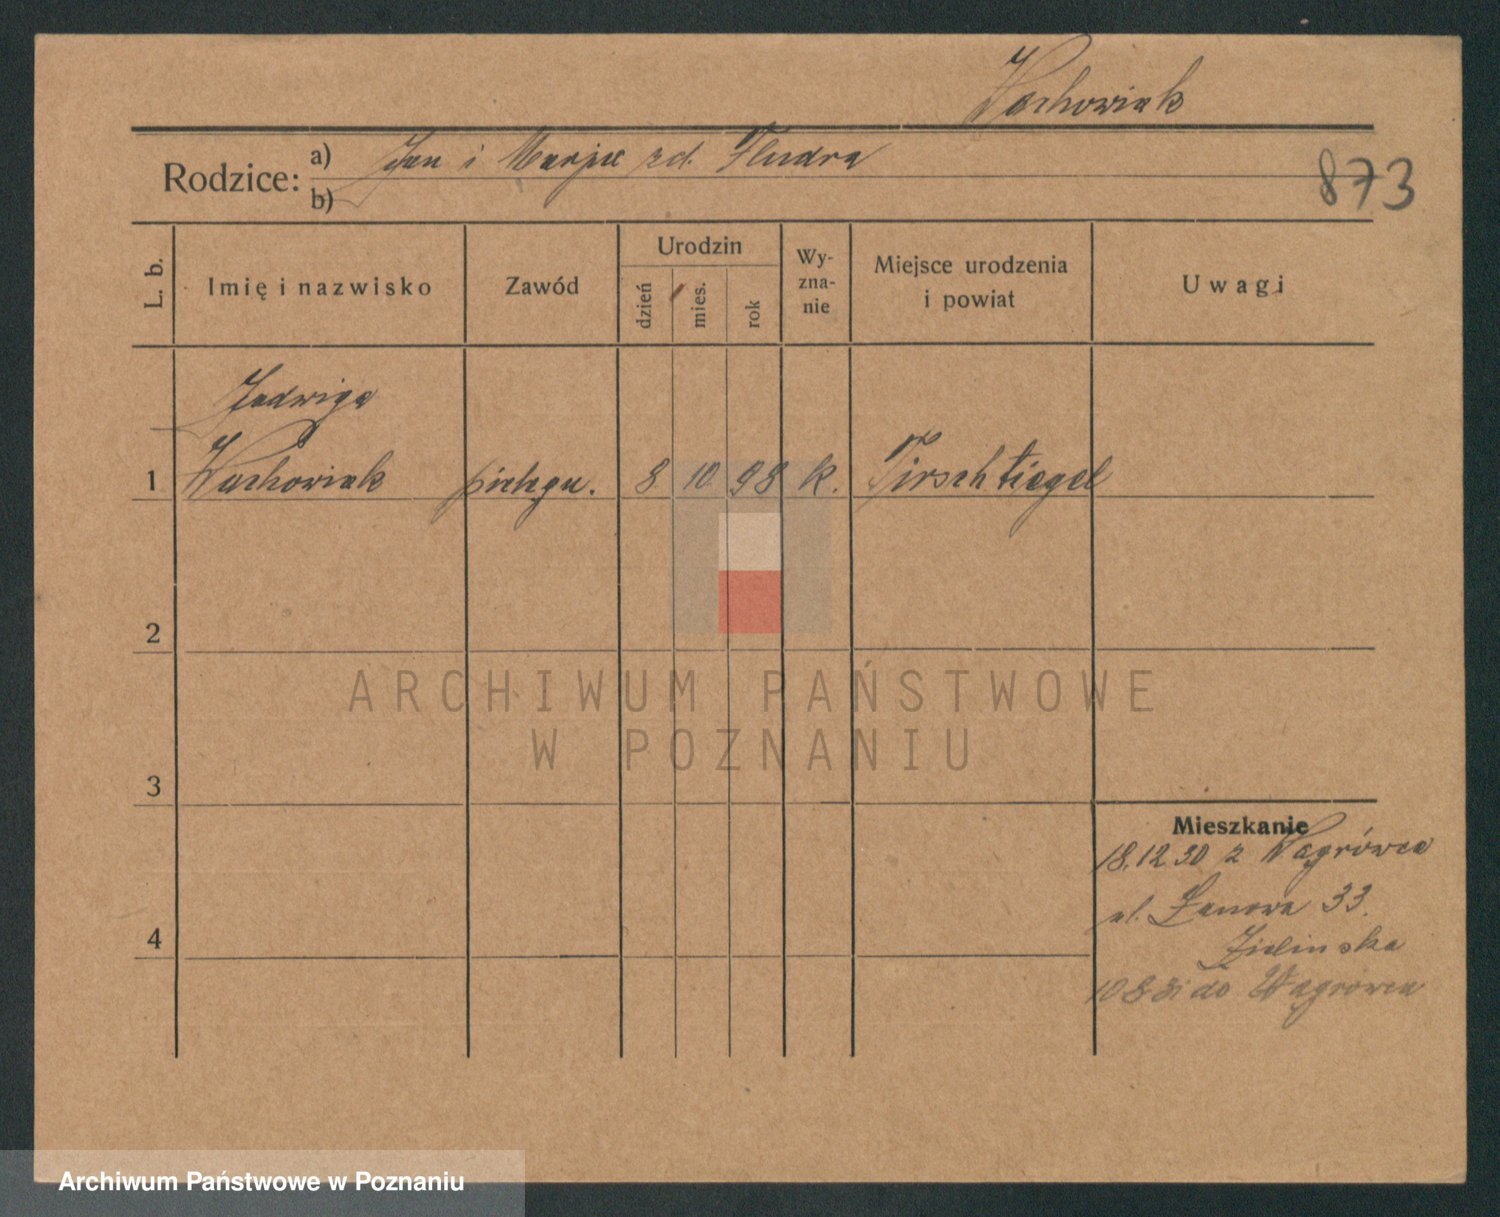 Wachowiak
Rodzice: a) Jan i Marja zd. Fludra
b)
873
L. b. Imię i nazwisko Zawód Urodzin dzień mies. rok Wyznanie Miejsce urodzenia i powiat Uwagi
Jadwiga
1 Wachowiak pielęgn. 8 10 98 k. Tirschtiegel
2
ARCHIWUM PAŃSTWOWE
W POZNANIU
3
Mieszkanie
18.12.30 z Wągrówca
ul. Łanowa 33.
Zielinska
4
10 8 31 do Wągrowca
Archiwum Państwowe w Poznaniu